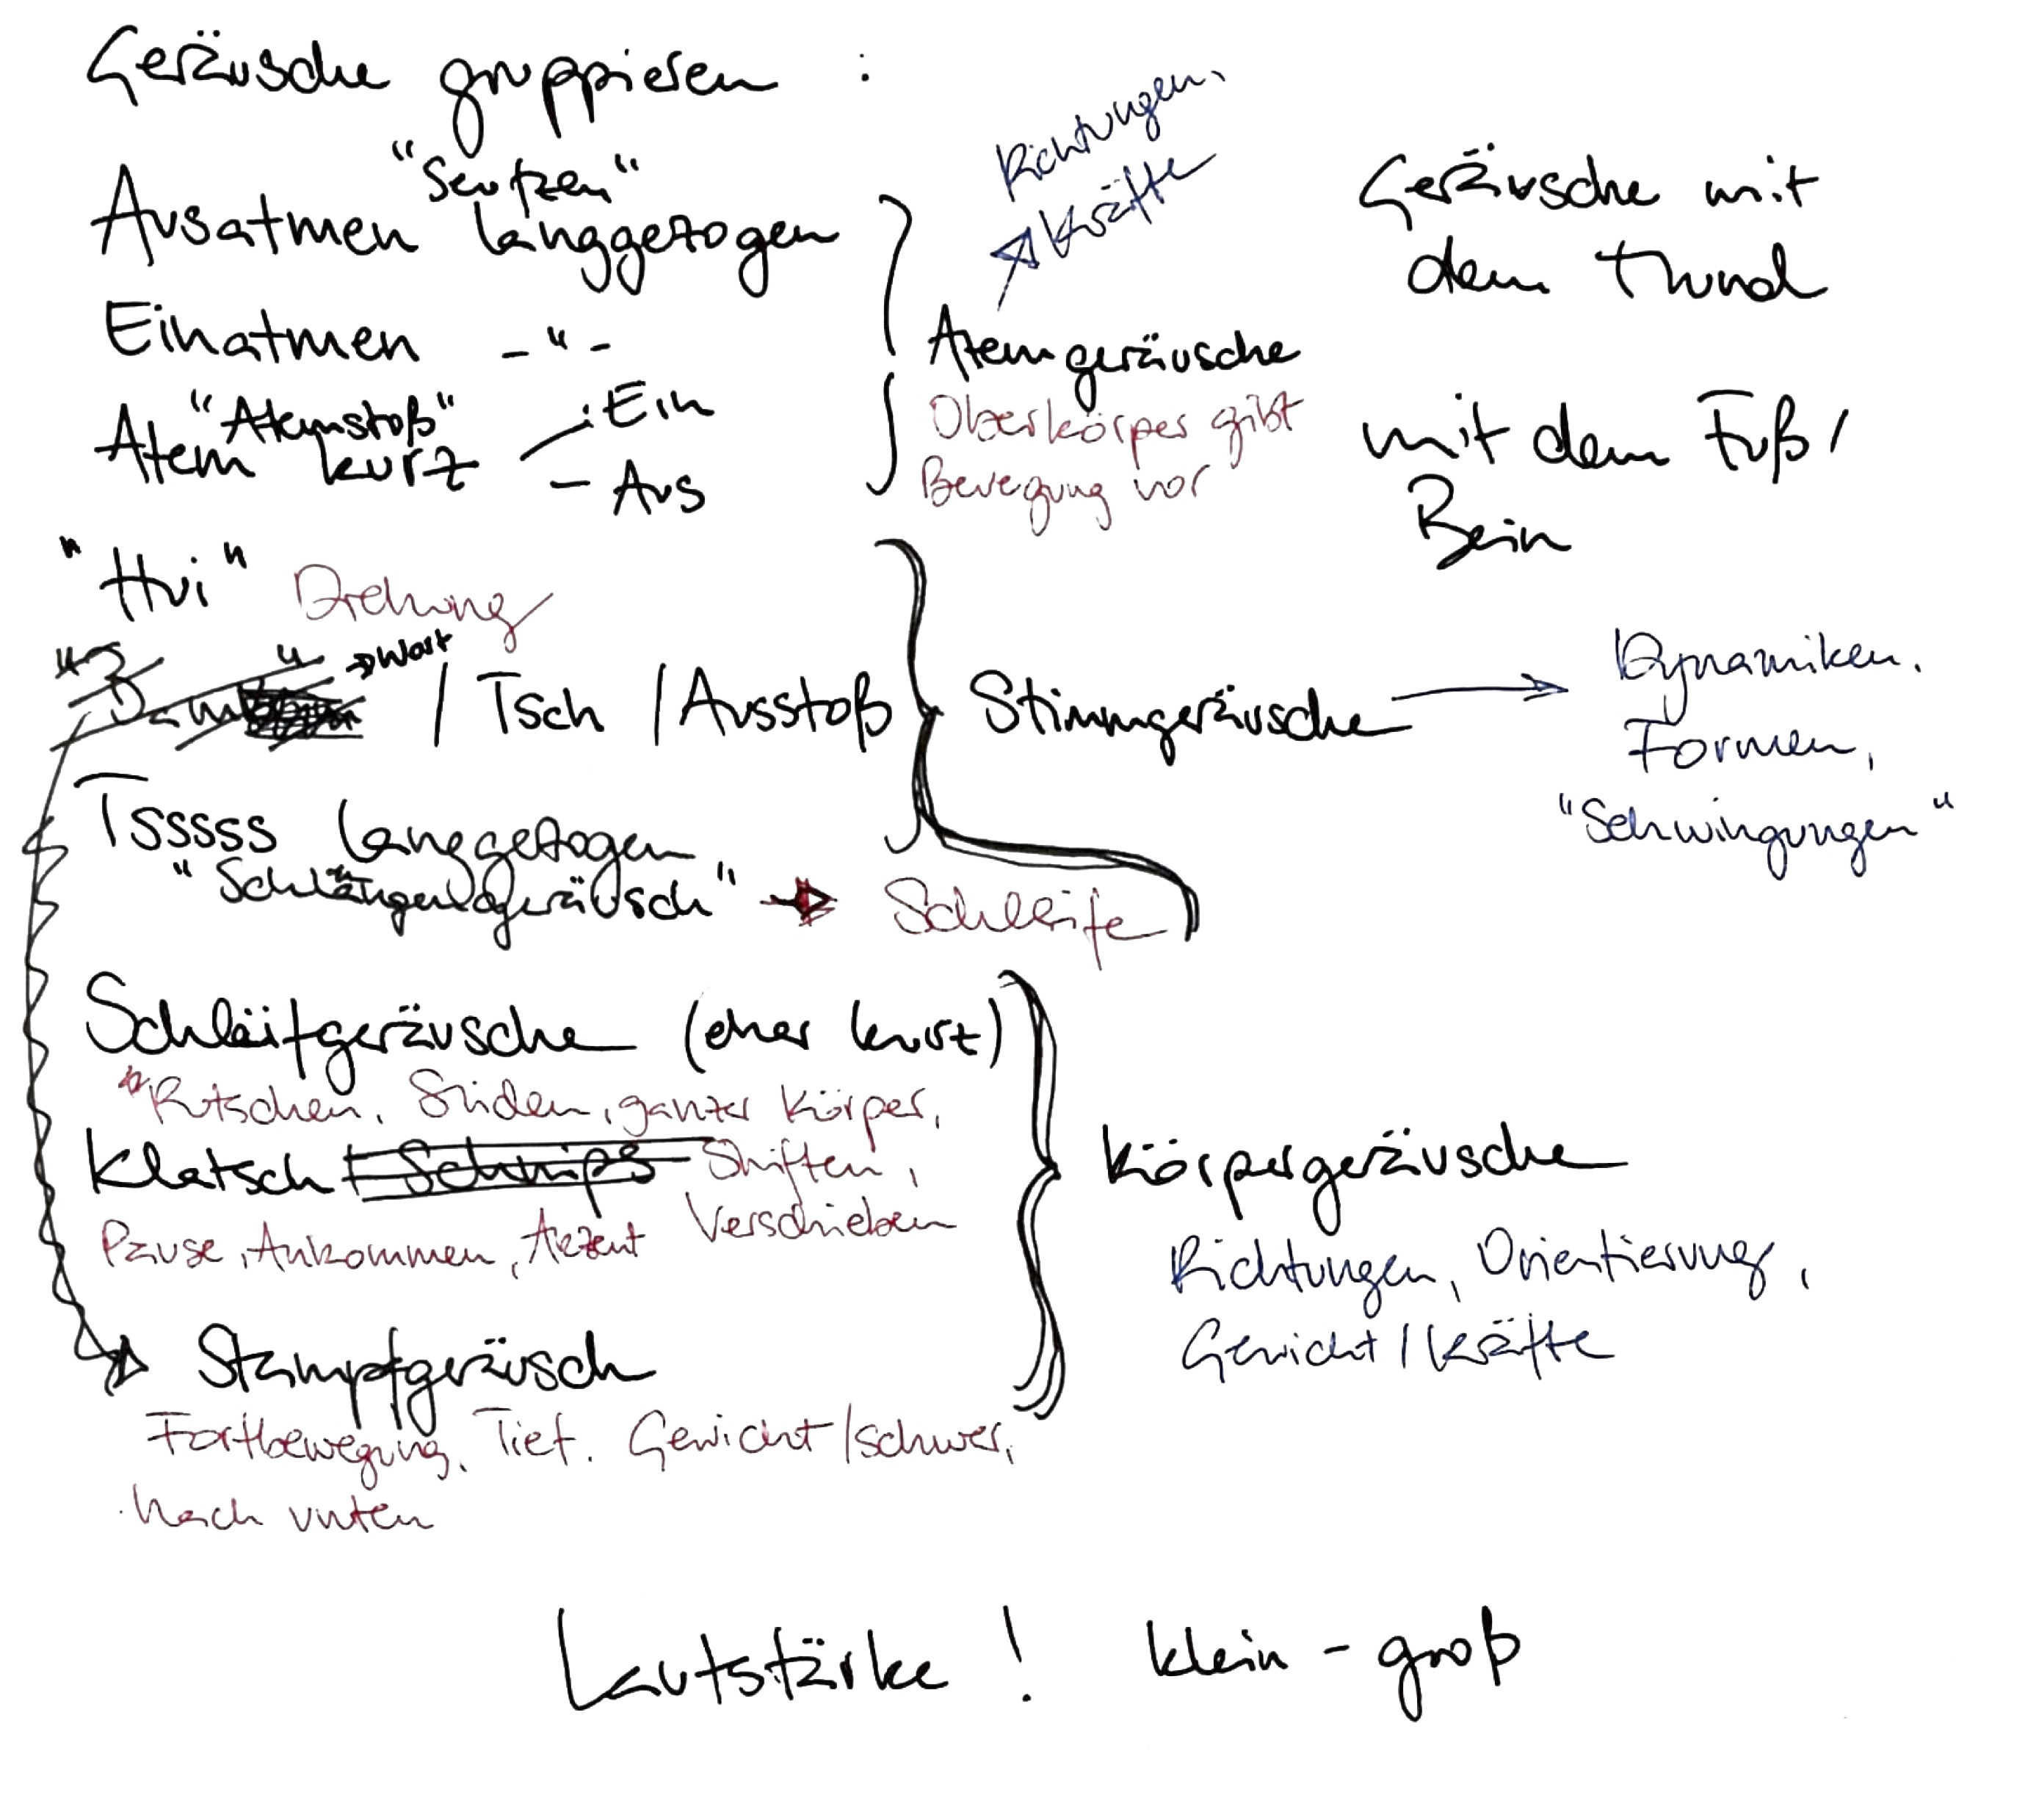 Geräusche gruppieren :
"Seufzen"
Ausatmen langgezogen
Einatmen - " -
"Atemstoß"
Atem kurz - Ein
- Aus
Richtungen,
Kräfte
Atemgeräusche
Oberkörper gibt
Bewegung vor
Geräusche mit
dem Mund
mit dem Fuß/
Bein
"Hui" Drehung
→ Wort
/ Tsch / Ausstoß
Stimmgeräusche
Dynamiken.
Formen,
"Schwingungen"
Tsssss langgezogen
"Schlangengeräusch" → Schleife
Schleifgeräusche (eher kurz)
Rutschen, Sliden, ganzer Körper,
Klatsch / Schnips Shiften,
Verschieben
Pause, Ankommen, Akzent
Körpergeräusche
Richtungen, Orientierung,
Gewicht / Kräfte
Stampfgeräusch
Fortbewegung, Tief. Gewicht/schwer,
Nach unten
Lautstärke ! klein - groß